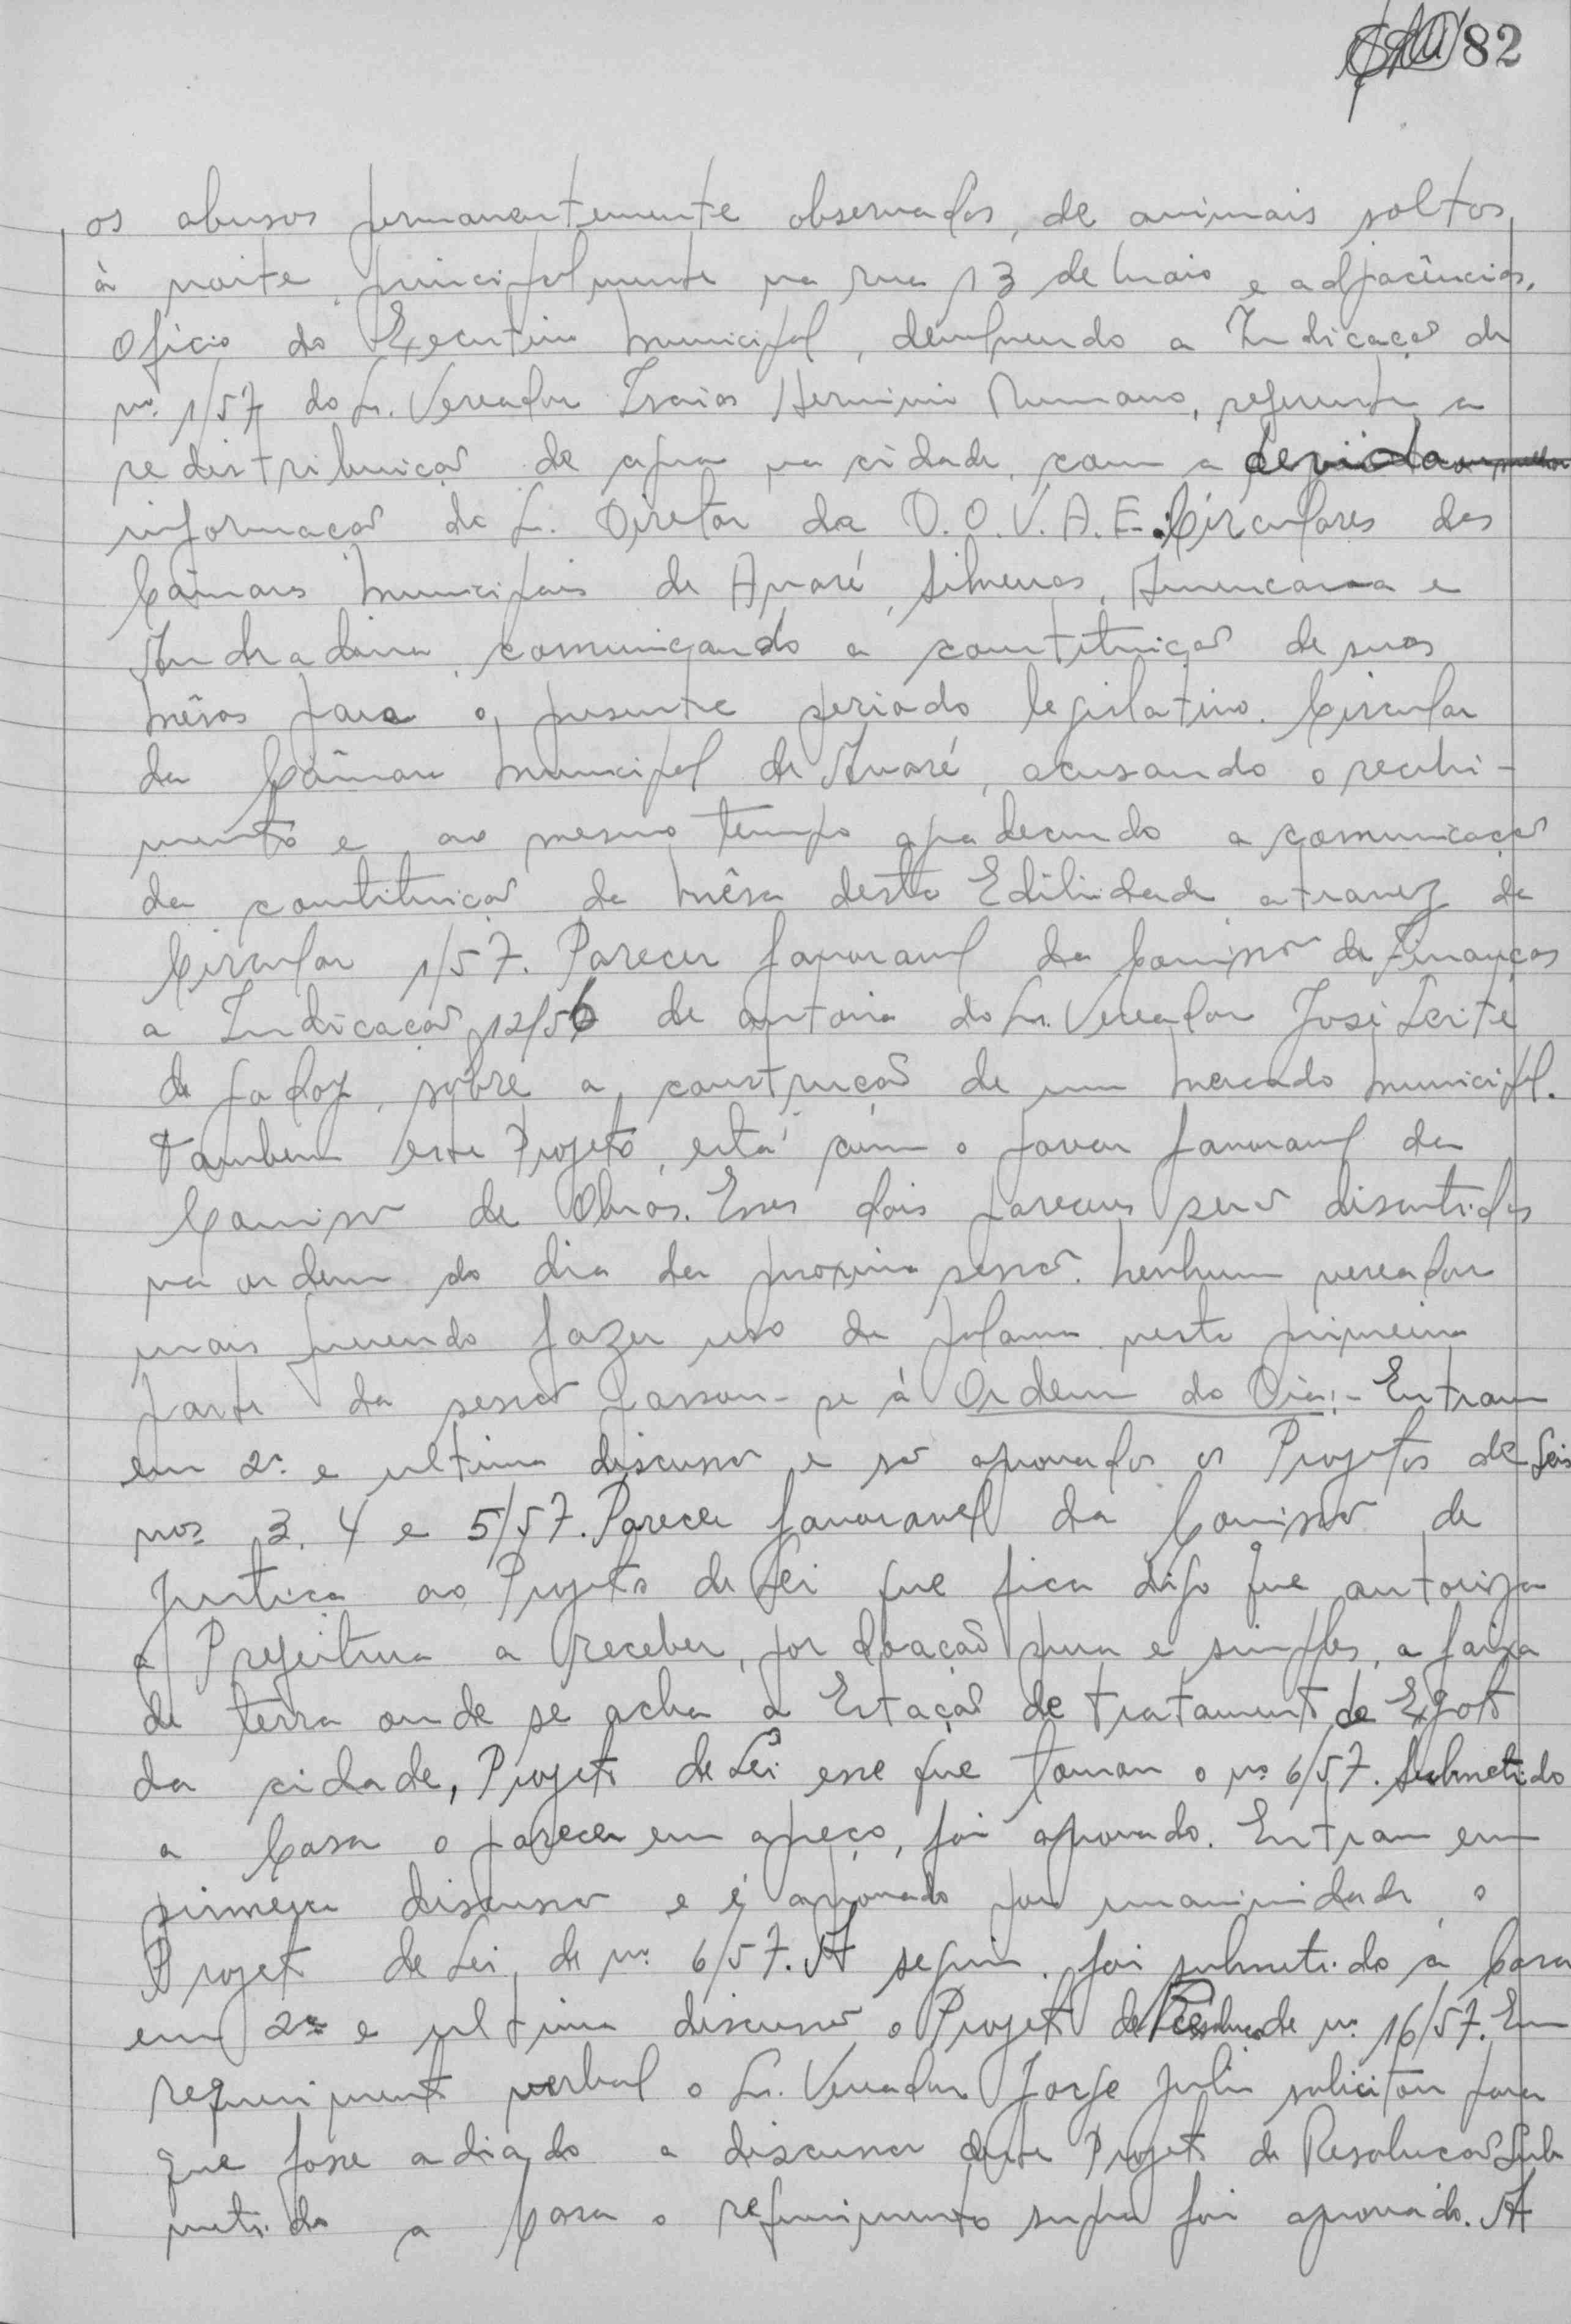 82
os abusos permanentemente observados, de animais soltos
à noite, principalmente na rua 13 de Maio e adjacências.
Oficio do Executivo Municipal, devolvendo a Indicação de
nº 1/57 do Sr. Vereador Isaias Herminio Romano, referente a
redistribuição de agua na cidade, com a devida
informação do Sr. Diretor da D.O.V.A.E. Circulares das
Câmaras Municipais de Avaré, Americana e
Andradina comunicando a constituição de suas
Mêsas para o presente periodo legislativo. Circular
da Câmara Municipal de Avaré, acusando o recebi-
mento e ao mesmo tempo agradecendo a comunicação
da constituição da Mêsa desta Edilidade atravez da
Circular 1/57. Parecer favoravel da Comissão de Finanças
a Indicação 12/56 de autoria do Sr. Vereador José Leite
de Godoy, sobre a construção de um Mercado Municipal.
Tambem este Projeto, está com o favoravel da
Comissão de Obras. Esses dois pareceres serão discutidos
na ordem do dia da proxima sessão. Nenhum vereador
mais querendo fazer uso da palavra nesta primeira
parte da sessão passou-se á Ordem do Dia:- Entram
em 2ª e ultima discussão e são aprovados os Projetos de Leis
nos 3, 4 e 5/57. Parecer favoravel da Comissão de
Justiça ao Projeto de Lei que fica digo que autoriza
a Prefeitura a receber, por doação pura e simples, a faixa
de terra onde se acha a Estação de tratamento de Esgoto
da cidade, Projeto de Lei esse que tomou o nº 6/57. Submetido
a Casa o parecer em apreço, foi aprovado. Entram em
primeira discussão e é aprovado por unanimidade o
Projeto de Lei, de nº 6/57. A seguir, foi submetido á Casa
em 2ª e ultima discussão o Projeto de Resolução de nº 16/57. Em
requerimento verbal o Sr. Vereador Jorge Julio solicitou para
que fosse adiado a discussão deste Projeto de Resolução. Sub
metido a Casa o requerimento supra foi aprovado. A